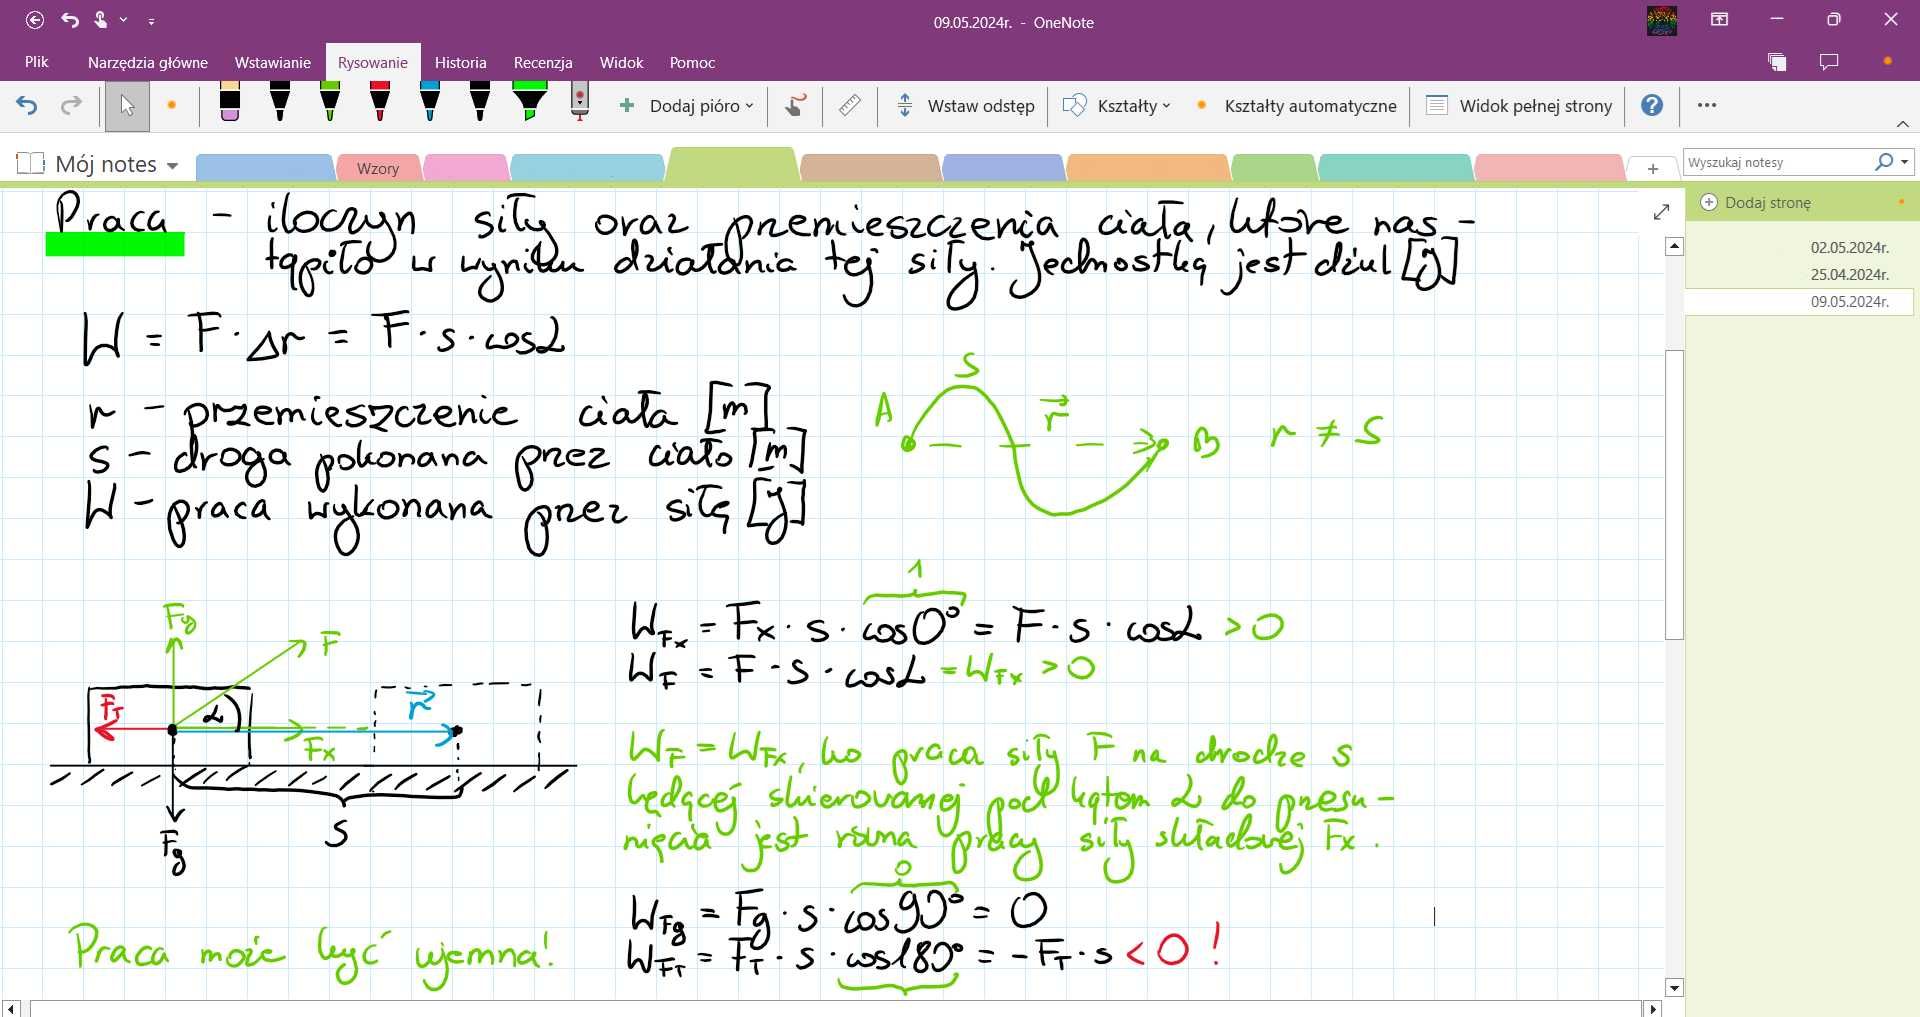 09.05.2024r. - OneNote
Plik Narzędzia główne Wstawianie Rysowanie Historia Recenzja Widok Pomoc
Dodaj pióro Wstaw odstęp Kształty Kształty automatyczne Widok pełnej strony
Mój notes Wzory Wyszukaj notesy
Dodaj stronę
02.05.2024r.
25.04.2024r.
09.05.2024r.
Praca - iloczyn siły oraz przemieszczenia ciała, które nas-
tąpiło w wyniku działania tej siły. Jednostką jest dżul [J]
W = F · Δr = F · s · cosα
r - przemieszczenie ciała [m]
s - droga pokonana przez ciało [m]
W - praca wykonana przez siłę [J]
S
A r⃗ B r ≠ S
1
W_Fx = Fx · s · cos0° = F · s · cosα > 0
W_F = F · s · cosα = W_Fx > 0
Fy F
F_T α r⃗
Fx
S
Fg
W_F = W_Fx, bo praca siły F na drodze s
będącej skierowanej pod kątem α do przesu-
nięcia jest równa pracy siły składowej Fx.
0
W_Fg = Fg · s · cos90° = 0
W_FT = F_T · s · cos180° = -F_T · s < 0 !
Praca może być ujemna!